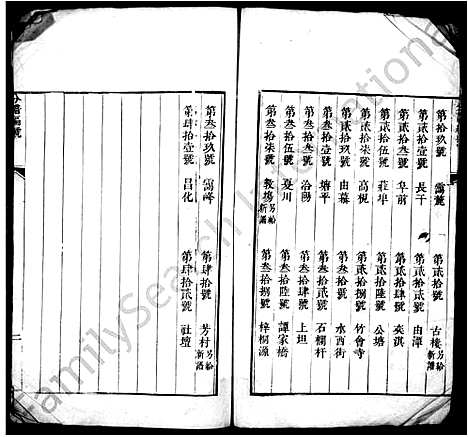 第拾玖號 靄麓 第貳拾號 古樓另給新譜
第貳拾壹號 長干 第貳拾貳號 由潭
第貳拾叁號 阜前 第貳拾肆號 奕淇
第貳拾伍號 莊埠 第貳拾陸號 公塘
第貳拾柒號 高梘 第貳拾捌號 竹會寺
第貳拾玖號 由葉 第叁拾號 水西街
第叁拾壹號 塘平 第叁拾貳號 石欄杆
第叁拾叁號 洛陽 第叁拾肆號 上坦
第叁拾伍號 夏川 第叁拾陸號 譚家橋
第叁拾柒號 教場另給新譜 第叁拾捌號 梓桐源
第叁拾玖號 靄峰 第肆拾號 芳村另給新譜
第肆拾壹號 昌化 第肆拾貳號 社壇
二
FamilySearch International